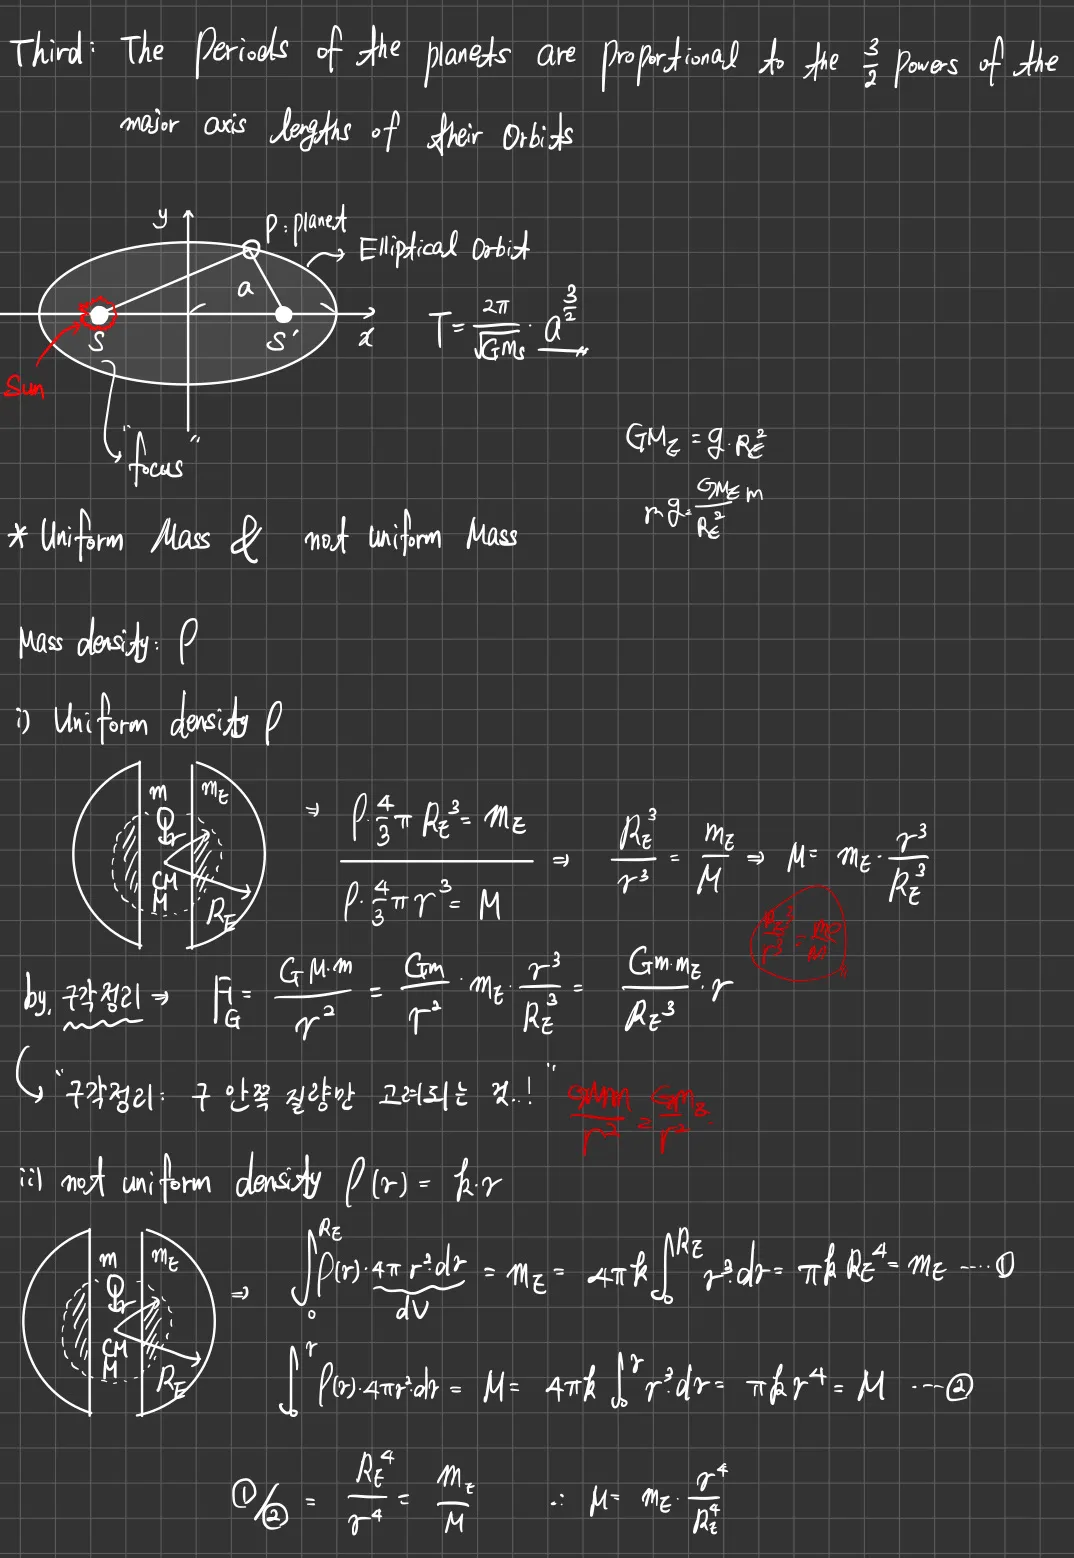 Third: The Periods of the planets are proportional to the 3/2 powers of the
major axis lengths of their Orbits
y
P: planet
Elliptical Orbit
a
S
S'
x
T = 2π/√(GMs) · a^(3/2)
Sun
"focus"
GM_E = g·R_E^2
mg = GM_E m/R_E^2
* Uniform Mass & not uniform Mass
Mass density: ρ
i) Uniform density ρ
m
m_E
r
CM
M
R_E
⇒ ρ·4/3 π R_E^3 = m_E
ρ·4/3 π r^3 = M
⇒ R_E^3/r^3 = m_E/M ⇒ M = m_E · r^3/R_E^3
by. 구각정리 ⇒ F_G = GM·m/r^2 = Gm/r^2 · m_E · r^3/R_E^3 = Gm·m_E/R_E^3 · r
"구각정리: 구 안쪽 질량만 고려되는 것..!"
ii) not uniform density ρ(r) = k·r
m
m_E
r
CM
M
R_E
⇒ ∫_0^R_E ρ(r)·4πr^2·dr = m_E = 4πk ∫_0^R_E r^3·dr = πk R_E^4 = m_E ····①
dV
∫_0^r ρ(r)·4πr^2·dr = M = 4πk ∫_0^r r^3·dr = πk r^4 = M ····②
①/② = R_E^4/r^4 = m_E/M ∴ M = m_E · r^4/R_E^4